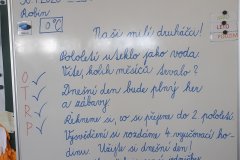 Robin
0°C
Naši milí druháčci!
Pololetí uteklo jako voda.
Víte, kolik měsíců trvalo?
O ✓ Dnešní den bude plný her
T ✓ a zábavy.
R ✓ Řekneme si, co si přejeme do 2. pololetí.
P ✓ Vysvědčení si rozdáme 4. vyučovací ho-
dinu. Užijte si dnešní den!